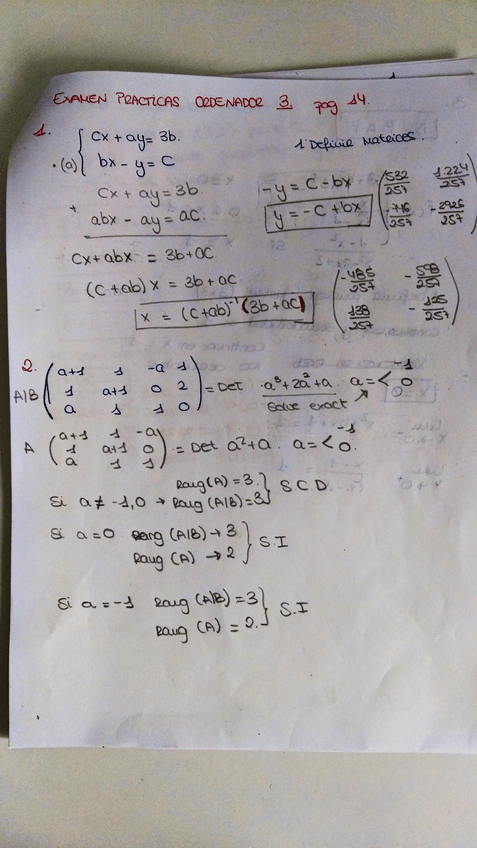 EXAMEN PRACTICAS ORDENADOR 3. pag 14.
1. 
(a) { cx + ay = 3b.
bx - y = c
1º Definir Matrices.
cx + ay = 3b
+ abx - ay = ac
cx + abx = 3b + ac
(c + ab) x = 3b + ac
x = (c+ab)⁻¹ (3b + ac)
-y = c - bx
y = -c + bx
( 532/257 1.224/257
-716/257 -2926/257 )
( -486/257 -598/257
138/257 -125/257 )
2.
A/B ( a+1 1 -a 1
1 a+1 0 2
a 1 1 0 ) = Det a³+2a²+a a = < -1 0
Solve exact
A ( a+1 1 -a
1 a+1 0
a 1 1 ) = Det a²+a. a = < -1 0.
Si a ≠ -1,0 → Rang(A) = 3. Rang(A/B) = 3 } S.C.D.
Si a = 0 Rang (A/B) → 3
Rang (A) → 2 } S.I
Si a = -1 Rang (A/B) = 3
Rang (A) = 2. } S.I